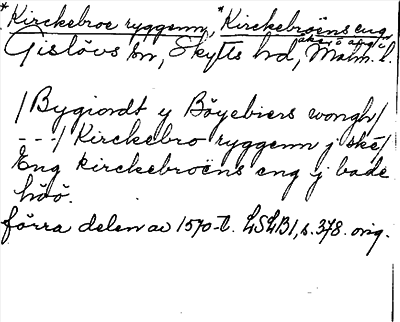 *Kirckebroe ryggenn, *Kirckebroëns eng,
Gislövs sn, Skytts hd, Malm. l.
/Bygiordt y Böyebiers wongh/
---/ Kirckebro ryggenn j ske/
Eng kirckebroëns eng j bade
höö.
förra delen av 1570-t. LSLB1, s. 378. orig.